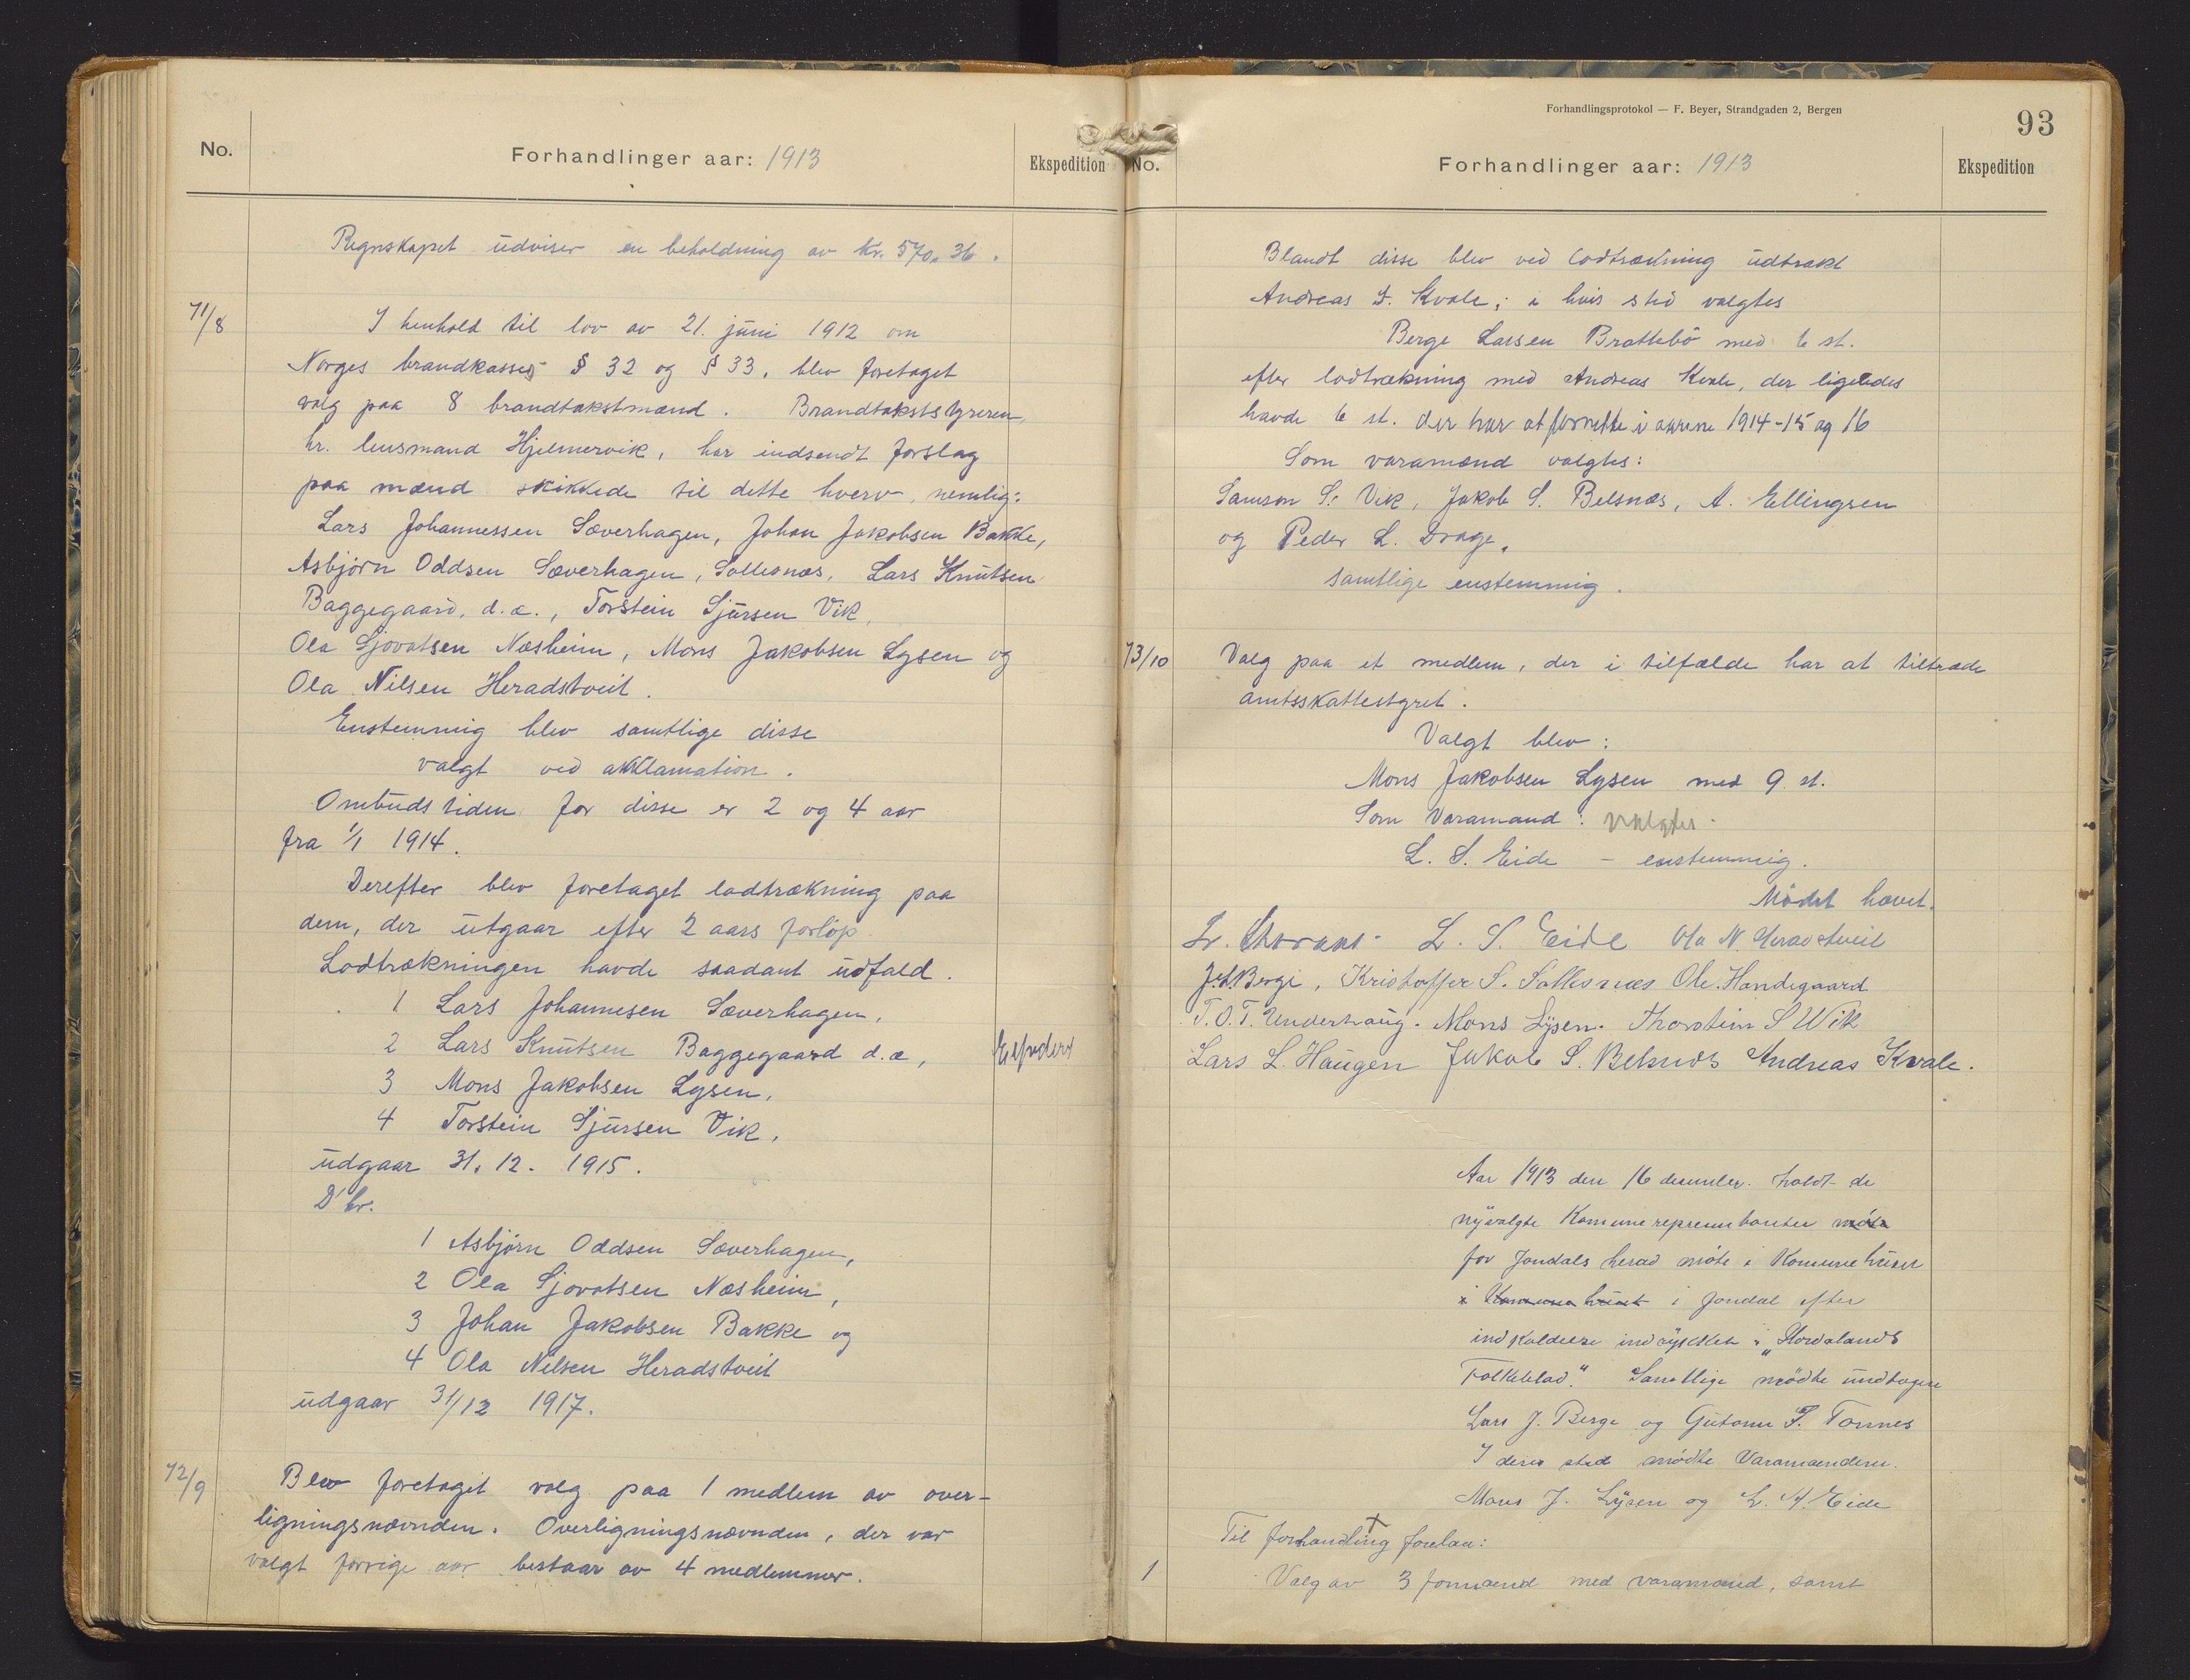 No.
Forhandlinger aar: 1913
Ekspedition
Regnskapet udviser en beholdning av kr. 570,36.
71/8
I henhold til lov av 21. juni 1912 om
Norges brandkasses § 32 og § 33, blev foretaget
valg paa 8 brandtakstmænd. Brandtakststyreren,
hr. lensmand Hjelmervik, har indsendt forslag
paa mænd skikkede til dette hverv, nemlig:
Lars Johannessen Sæverhagen, Johan Jakobsen Bakke,
Asbjørn Oddsen Sæverhagen, Sollesnæs, Lars Knutsen
Baggegaard, d.æ., Torstein Sjursen Vik,
Ola Sjovatsen Næsheim, Mons Jakobsen Lysen og
Ola Nilsen Heradstveit.
Enstemmig blev samtlige disse
valgt ved akklamation.
Ombudstiden for disse er 2 og 4 aar
fra 1/1 1914.
Derefter blev foretaget lodtrækning paa
dem, der utgaar efter 2 aars forløp.
Lodtrækningen havde saadant udfald.
1 Lars Johannesen Sæverhagen,
2 Lars Knutsen Baggegaard d.æ,
3 Mons Jakobsen Lysen,
4 Torstein Sjursen Vik,
udgaar 31.12. 1915.
D'hr.
1 Asbjørn Oddsen Sæverhagen,
2 Ola Sjovatsen Næsheim,
3 Johan Jakobsen Bakke og
4 Ola Nilsen Heradstveit
udgaar 31/12 1917.
72/9
Blev foretaget valg paa 1 medlem av over-
ligningsnævnden. Overligningsnævnden, der var
valgt forrige aar bestaar av 4 medlemmer.
Forhandlingsprotokol — F. Beyer, Strandgaden 2, Bergen
93
No.
Forhandlinger aar: 1913
Ekspedition
Blandt disse blev ved lodtrækning udtrukt
Andreas S. Kvale; i hvis sted valgtes
Berge Larsen Brattebø med 6 st.
efter lodtrækning med Andreas Kvale, der ligeledes
havde 6 st. der har at forrette i aarene 1914-15 og 16
Som varamænd valgtes:
Samson S. Vik, Jakob S. Belsnæs, A. Ellingsen
og Peder L. Drage,
samtlige enstemmig.
73/10
Valg paa et medlem, der i tilfælde har at tiltræde
amtsskattestyret.
Valgt blev:
Mons Jakobsen Lysen med 9 st.
Som Varamand: valgtes
L. S. Eide - enstemmig.
Mødet hævet.
L. S. Eide Ola N. Heradstveit
J.L. Berge, Kristoffer S. Sollesnæs Ole Handegaard
T.O.T. Underhaug. Mons Lysen. Thorstein S Wik
Lars L. Haugen Jakob S. Belsnæs Andreas Kvale.
Aar 1913 den 16 december holdt de
nyvalgte Komunerepresentanter møte
for Jondals herad møte i Komunehuset
i Komunehuset i Jondal efter
indkaldelse indrykket i "Hordalands
Folkeblad". Samtlige mødte undtagen
Lars J. Berge og Guttorm T. Tonnes
I deres sted mødte Varamændene.
Mons J. Lysen og L. S. Eide
Til forhandling forelaa:
1
Valg av 3 formænd med varamænd, samt